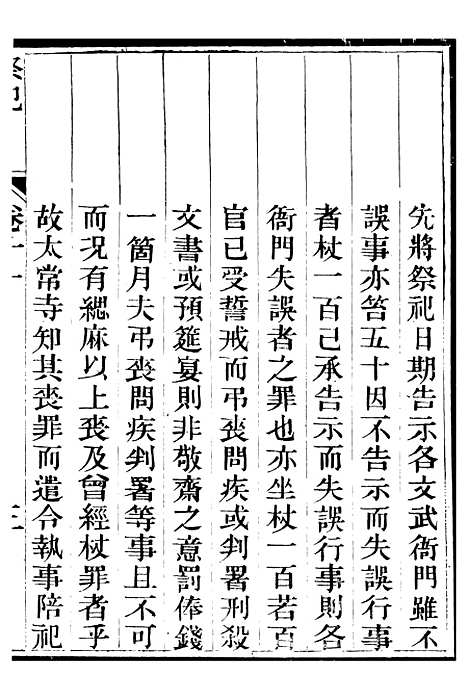 先將祭祀日期告示各文武衙門雖不
誤事亦笞五十因不告示而失誤行事
者杖一百已承告示而失誤行事則各
衙門失誤者之罪也亦坐杖一百若百
官已受誓戒而弔喪問疾或判署刑殺
文書或預筵宴則非敬齋之意罰俸錢
一箇月夫弔喪問疾判署等事且不可
而况有緦麻以上喪及曾經杖罪者乎
故太常寺知其喪罪而遣令執事陪祀
祭祀
卷十一